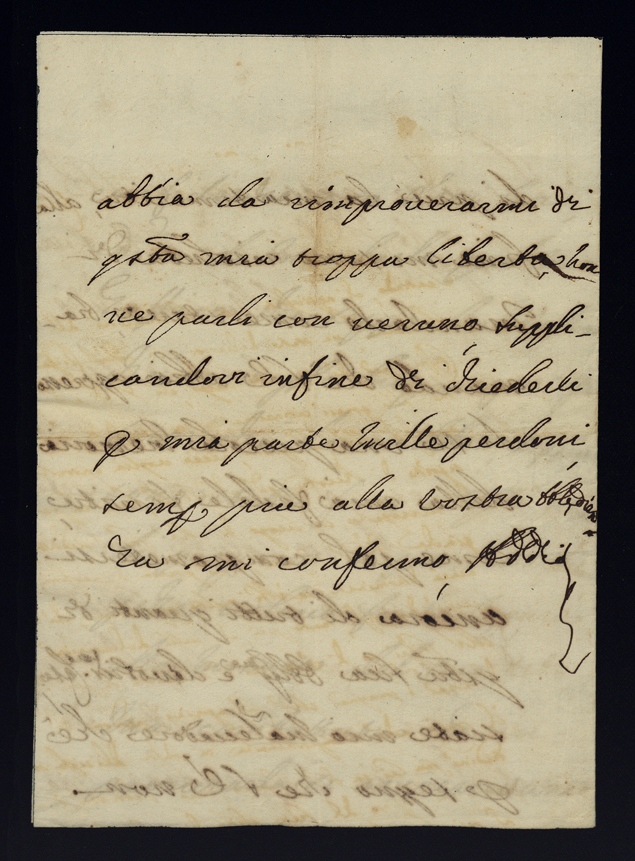 abbia da rimproverarmi di
qsta mia troppa liberta, non
ne parli con veruno, suppli-
candovi infine di chiederli
p mia parte mille perdoni
semp più alla vostra obbedien
za mi confermo, Addio